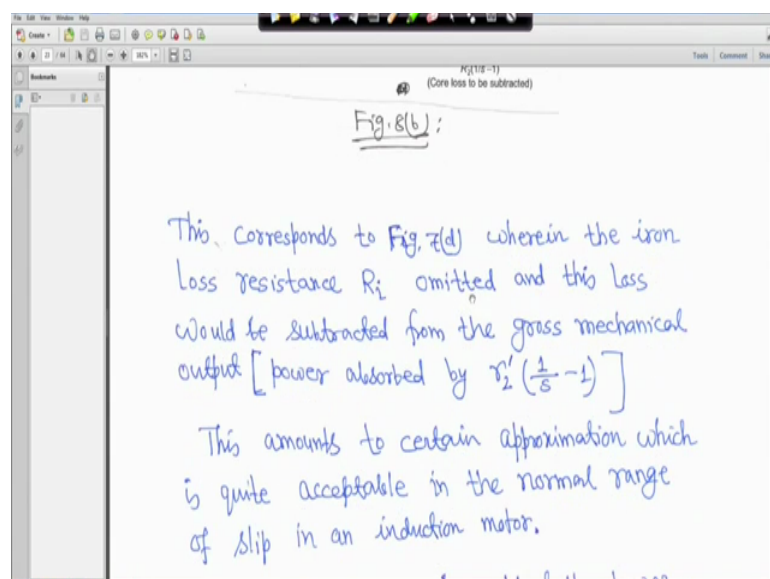 File Edit View Window Help
Create
21 / 64
182%
Tools Comment Share
Bookmarks
R₂(1/s −1)
(Core loss to be subtracted)
Fig. 8(b):
This corresponds to Fig. 7(d) wherein the iron
Loss resistance Ri omitted and this loss
would be subtracted from the gross mechanical
output [power absorbed by r₂′ (1/s −1)]
This amounts to certain approximation which
is quite acceptable in the normal range
of slip in an induction motor.